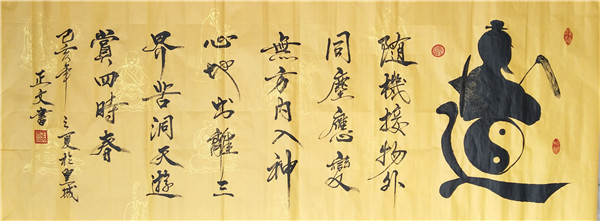 道
隨機接物外
同塵應變
無方内入神
心地出離三
界苦洞天遊
賞四時春
己亥年之夏於皇城
正文書